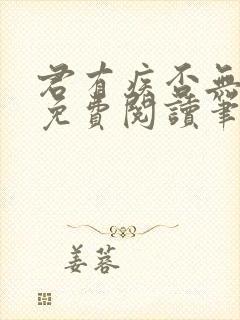 君有疾否無
免費閱讀筆
姜蓉